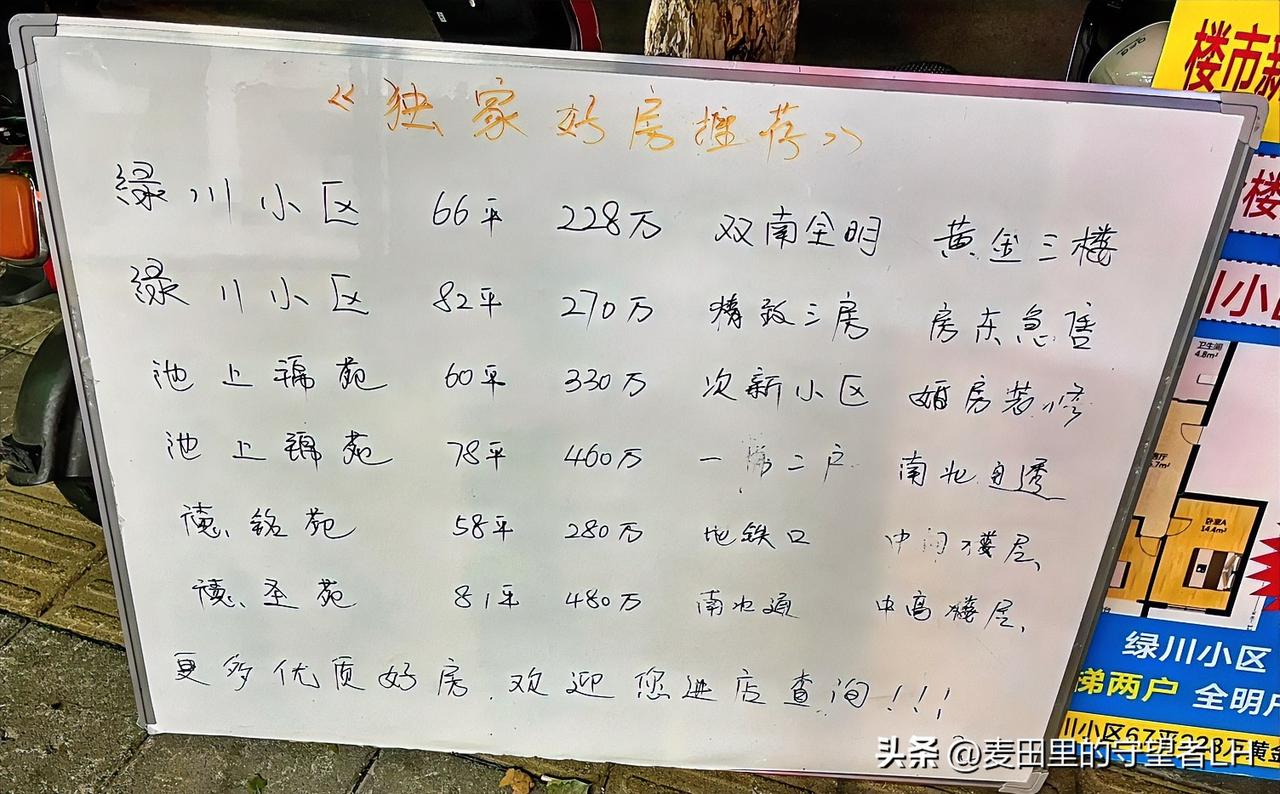 《独家好房推荐》
绿川小区 66平 228万 双南全明 黄金三楼
绿川小区 82平 270万 精致三房 房东急售
池上锦苑 60平 330万 次新小区 婚房装修
池上锦苑 78平 460万 一梯二户 南北通透
德铭苑 58平 280万 地铁口 中间楼层
德圣苑 81平 480万 南北通 中高楼层
更多优质好房,欢迎您进店查询!!!
楼市新
楼
川小区
卫生间
4.8m²
卧室A
14.4m²
绿川小区
梯两户 全明户
川小区67平228万黄金
头条 @麦田里的守望者LFF